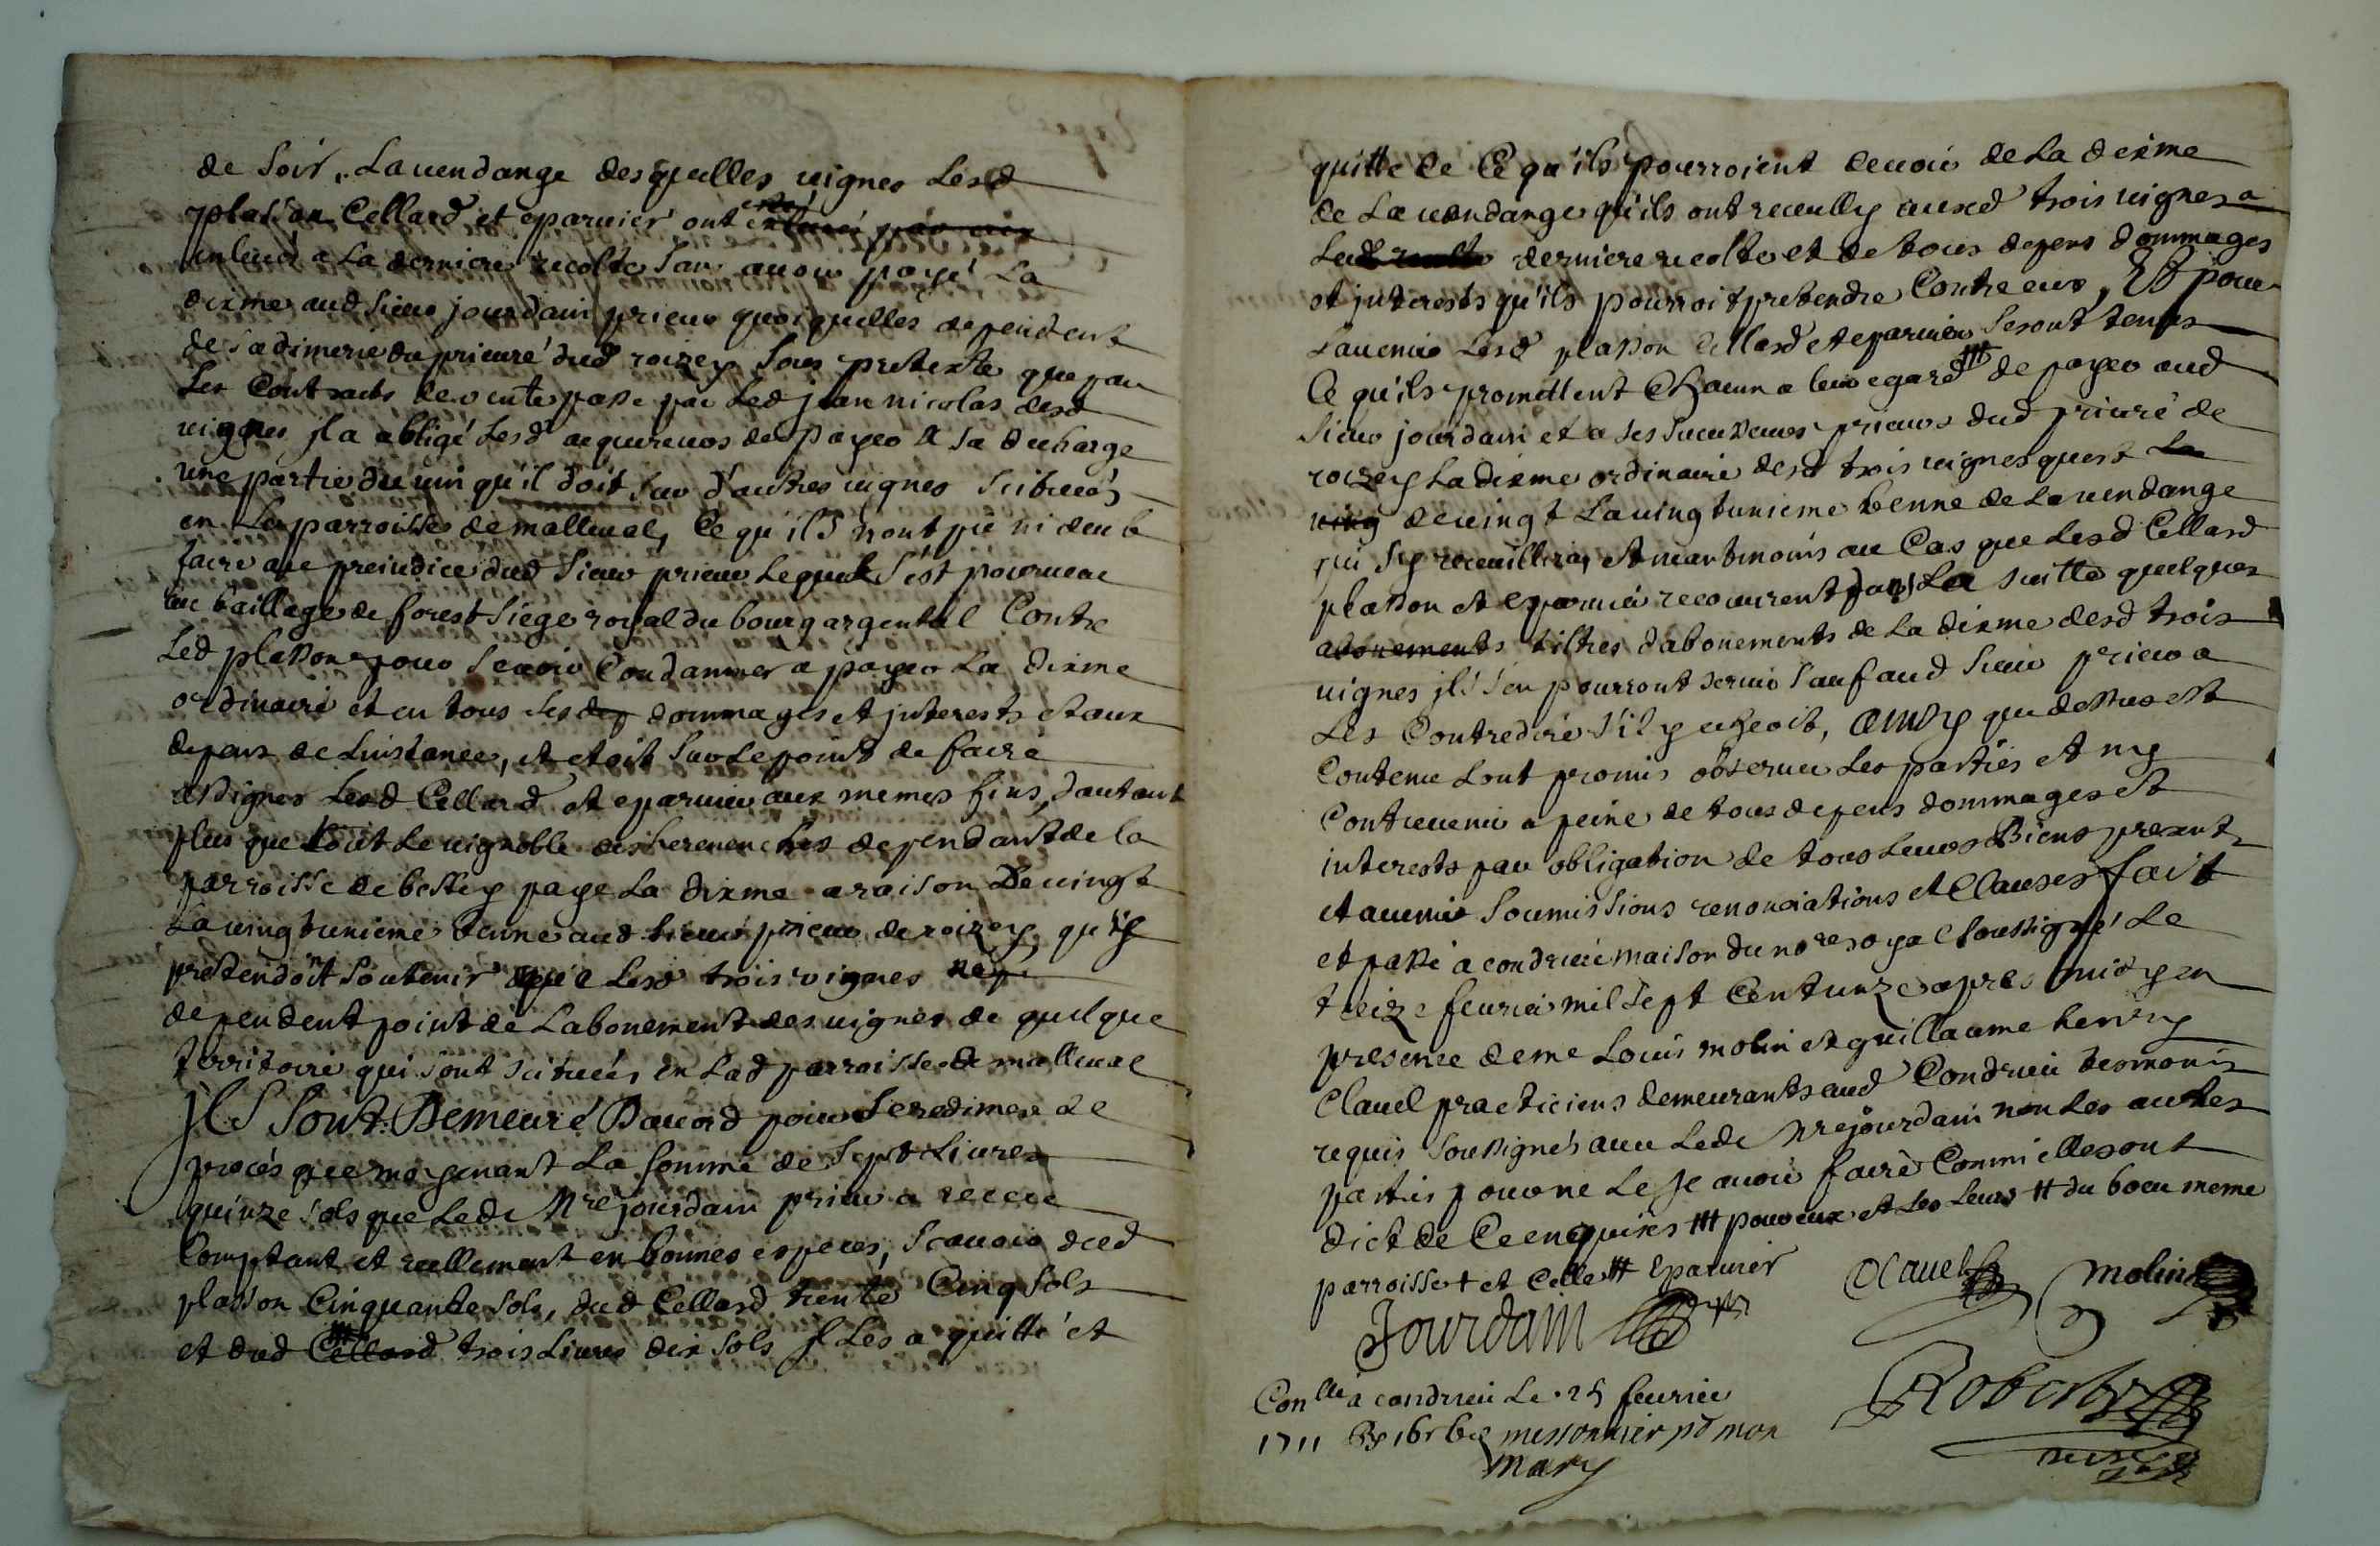 de soir. La uendange desquelles uignes Lesd
plasson Cellard et eparuier ont
enleué a La derniere recolte san auoir payé La
dixme aud sieur jourdain prieur quoiquelles dependent
de sa dimerie du prieuré dud roizey sous pretexte que par
Les Contracts de uente passé par Led jean nicolas desd
uignes jl a obligé Lesd acquereurs de payer a sa decharge
une partie du uin qu'il doit sur d'autres uignes scituées
en La parroisse de malleual, Ce qu'ils n'ont pu ni deub
faire au preiudice dud sieur prieur Lequel s'est pourueu
au baillage de forest siege royal du bourg argental Contre
Led plasson pour se uoir Condamner a payer La dixme
ordinaire et en tous ses dommages et jnterests et aux
depens de Linstance, et etoit sur Le point de faire
assigner Lesd Cellard et eparuier aux memes fins, dautant
plus que tout Le uignoble des dependant de la
parroisse de bessey paye La dixme a raison De uingt
La uingtunieme benne aud sieur prieur de roizey, qu'il
pretendoit soutenir que Lesd trois uignes ne
dependent point de Labonement des uignes de quelque
territoire qui sont scituées en Lad parroisse de malleual
jls sont Demeuré Dacord pour se redimer de
procés que moyenant La somme de sept Liures
quinze sols que Ledi Mre jourdain prieur a receu
Comptant et reellement en bonnes especes, scauoir dud
plasson Cinquante sols, dud Cellard trente Cinq sols
et dud Cellard trois Liures dix sols jl Les a quitté et
quitte de Ce qu'ils pourroient deuoir de La dixme
de La uendange qu'ils ont receully auxd trois uignes a
Lad recolte derniere recolte et de tous depens dommages
et jnterests qu'ils pourroit pretendre Contre eux, Et pour
Lauenir Lesd plasson Cellard et eparuier seront tenus
Ce qu'ils promettent Chacun a leur egard ## de payer aud
sieur jourdain et a ses successeurs prieurs dud prieuré de
roizey La dixme ordinaire desd trois uignes quest La
uing de uingt La uingtunieme benne de La uendange
qui sy recueillira, et neantmoins au Cas que Lesd Cellard
plasson et eparuier recouurent dans La suitte quelques
abonements tiltres d'abonements de La dixme desd trois
uignes jls s'en pourront seruir sauf aud sieur prieur a
Les Contredire s'il y echeoit, ainsy que dessus est
Contenu Lont promis obseruer Les parties et ny
Contreuenir a peine de tous depens dommages et
interests par obligation de tous Leurs Biens presents
et auenir soumissions renonciations et Clauses fait
et passé a condrieu maison du nore royal soussigné Le
treize feurier mil sept Cent unze apres midy en
presence de me Louis molin et guillaume henry
Clauel practiciens demeurants aud Condrieu temoins
requis soussignés auec Ledi Mre jourdain non Les autres
parties pour ne Le scauoir faire Comme elles ont
dict de Ce enquises ## pour eux et Les Leurs # du bocu meme
parroisse + et Celle ## Eparuier
Clauel molin
Jourdain
Conlle a condrieu Le 25 feurier
1711
messonnier pr mon
mary
Robert